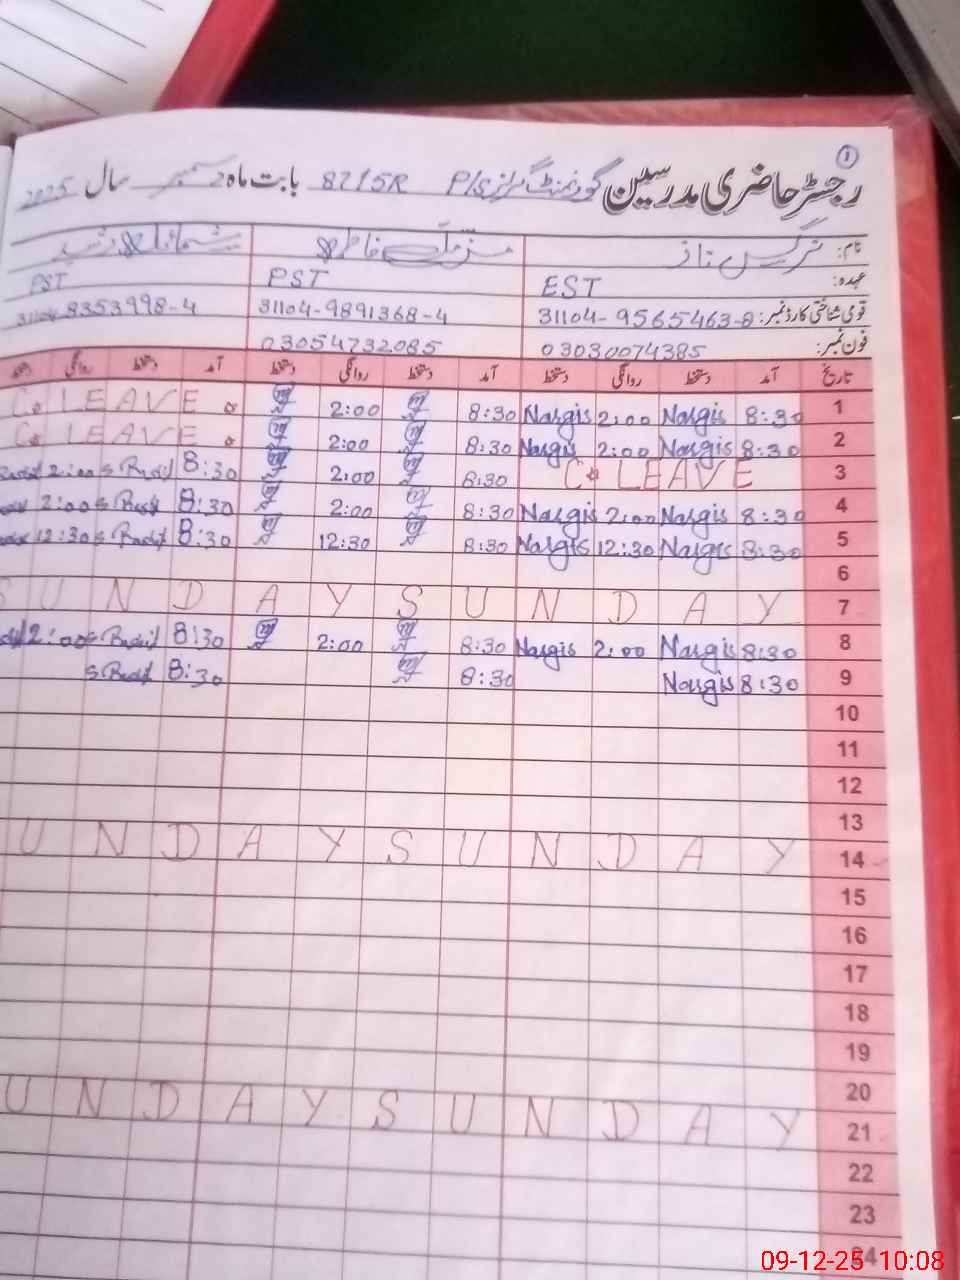 ①
رجسٹر حاضری مدرسین گورنمنٹ گرلز P/S 82/5R بابت ماہ دسمبر سال 2025
نام: نرگس ناز فاطمہ
عہدہ: EST PST PST
قومی شناختی کارڈ نمبر: 31104-9565463-8 31104-9891368-4 31104 8353998-4
فون نمبر: 03030074385 03054732085
تاریخ آمد دستخط روانگی دستخط آمد دستخط روانگی دستخط آمد دستخط روانگی
1 8:30 Nargis 2:00 Nargis 8:30 2:00 C. LEAVE.
2 8:30 Nargis 2:00 Nargis 8:30 2:00 C. LEAVE.
3 C. LEAVE 8:30 2:00 8:30 2:00
4 8:30 Nargis 2:00 Nargis 8:30 2:00 8:30 2:00
5 8:30 Nargis 12:30 Nargis 8:30 12:30 8:30 12:30
6
7 SUNDAY SUNDAY
8 8:30 Nargis 2:00 Nargis 8:30 2:00 8:30 2:00
9 8:30 Nargis 8:30 8:30
10
11
12
13
14 UNDAY SUNDAY
15
16
17
18
19
20
21 UNDAY SUNDAY
22
23
24
09-12-25 10:08